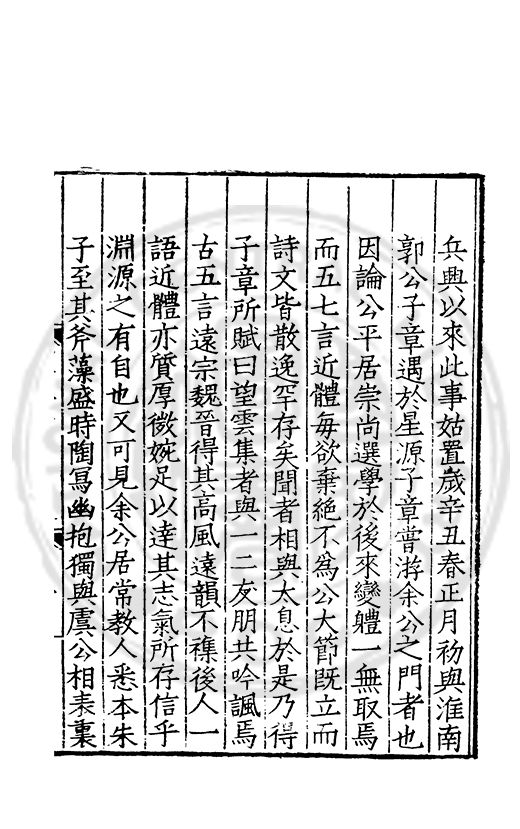 兵興以來此事姑置歲辛丑春正月初與淮南
郭公子章遇於星源子章嘗游余公之門者也
因論公平居崇尚選學於後來變體一無取焉
而五七言近體每欲棄絕不爲公大節既立而
詩文皆散逸罕存矣聞者相與太息於是乃得
子章所賦曰望雲集者與一二友朋共吟諷焉
古五言遠宗魏晉得其高風遠韻不襍後人一
語近體亦質厚微婉足以達其志氣所存信乎
淵源之有自也又可見余公居常教人悉本朱
子至其斧藻盛時陶冩幽抱獨與虞公相表裏